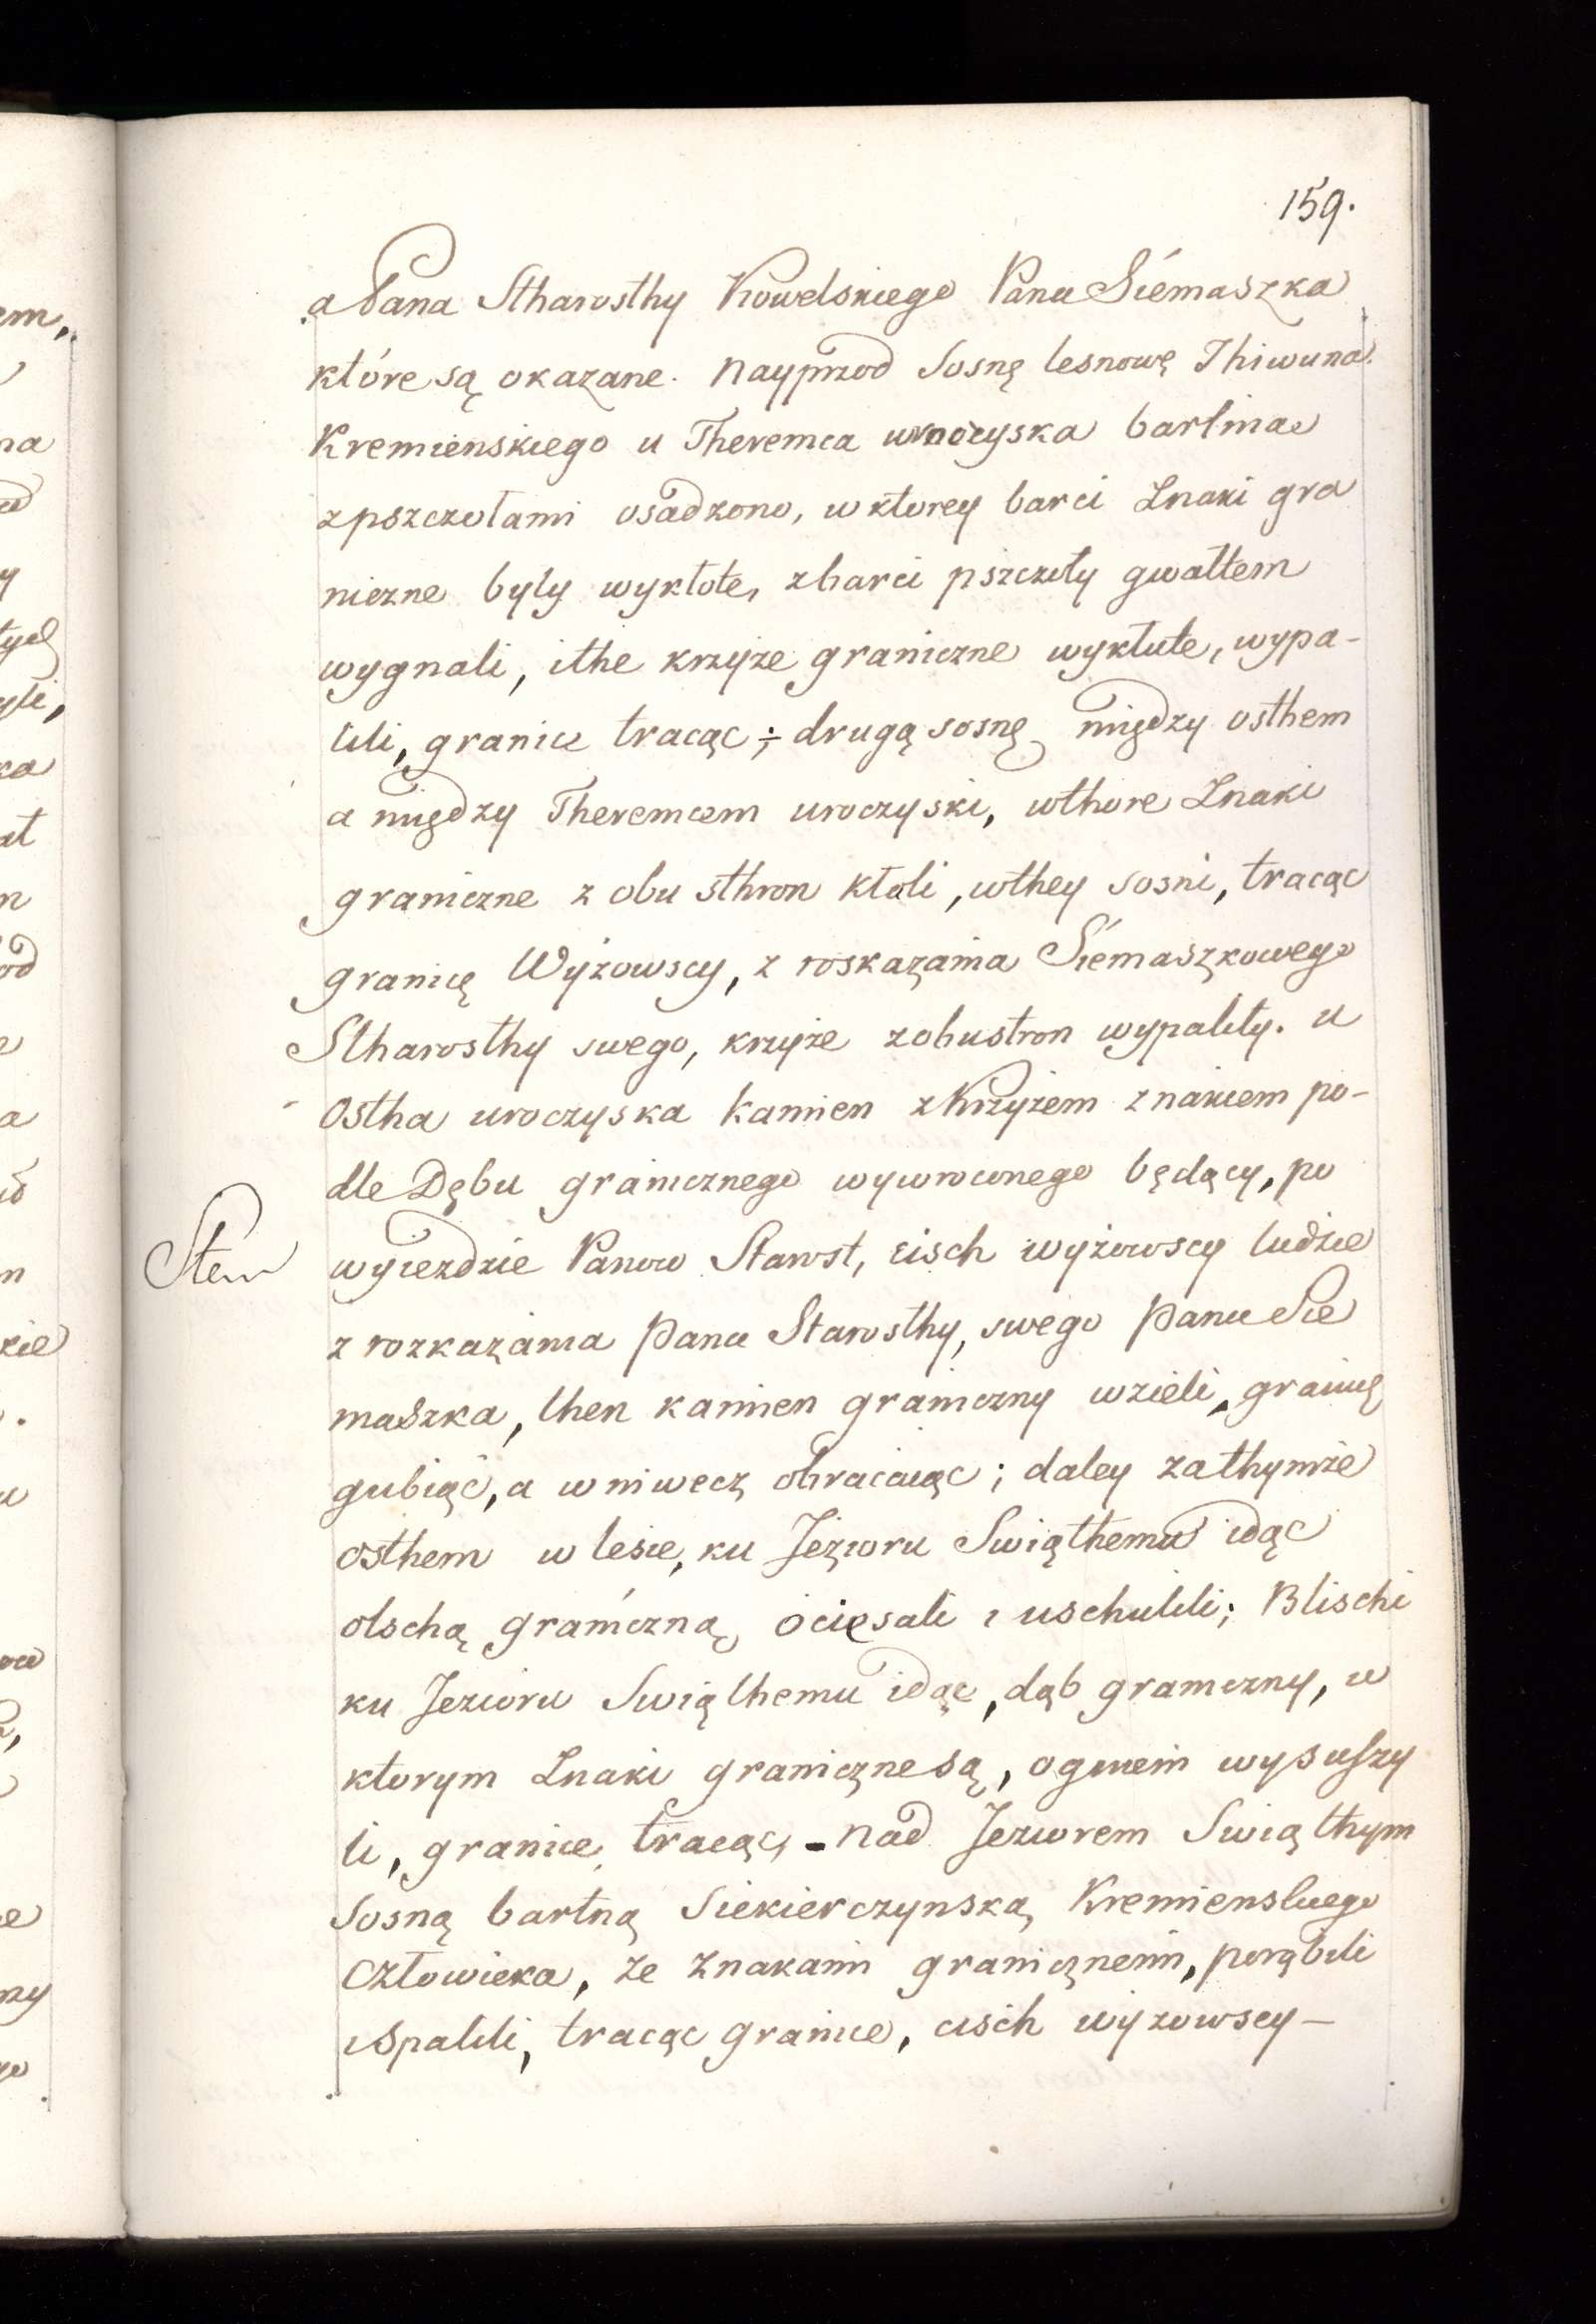 159.
a Pana Stharosthy Kowelskiego Pana Siémaszka
które są okazane. Nayprzod Sosnę lesnowę Thiwuna
Kremienskiego u Theremca uroczyska bartma
z pszczołami osadzono, w ktorey barci Znaki gra
niczne były wykłote, z barci pszczoły gwałtem
wygnali, i the krzyże graniczne wykłute, wypa-
lili, granice tracąc; drugą sosnę między osthem
a między Theremcem uroczyski, wthore Znaki
graniczne z obu sthron kłoli, w they sosni, tracąc
granicę Wyżowscy, z roskazania Siémaszkowego
Stharosthy swego, krzyże z obustron wypalily. u
Ostha uroczyska kamien z Krzyżem znakiem po-
dle Dębu granicznego wywroconego będący, po
wyiezdzie Panow Starost, cisch wyżowscy ludzie
z rozkazania pana Starosthy, swego pana Sie
maszka, then kamien graniczny wzieli, granicę
gubiąc, a w niwecz obracaiąc; daley za thymże
osthem w lesie, ku Jezioru Swiąthemu idąc
olschą graniczną ociesali i uschulili; Blischi
ku Jezioru Swiąthemu idąc, dąb graniczny, w
ktorym Znaki graniczne są, ogniem wysuszy
li, granice tracąc, - nad Jeziorem Swiąthym
Sosną bartną Siekierczynską Kremienskiego
Człowieka, ze znakami granicznemi, porąbili
i spalili, tracąc granice, cisch wyżowscy -
Stem